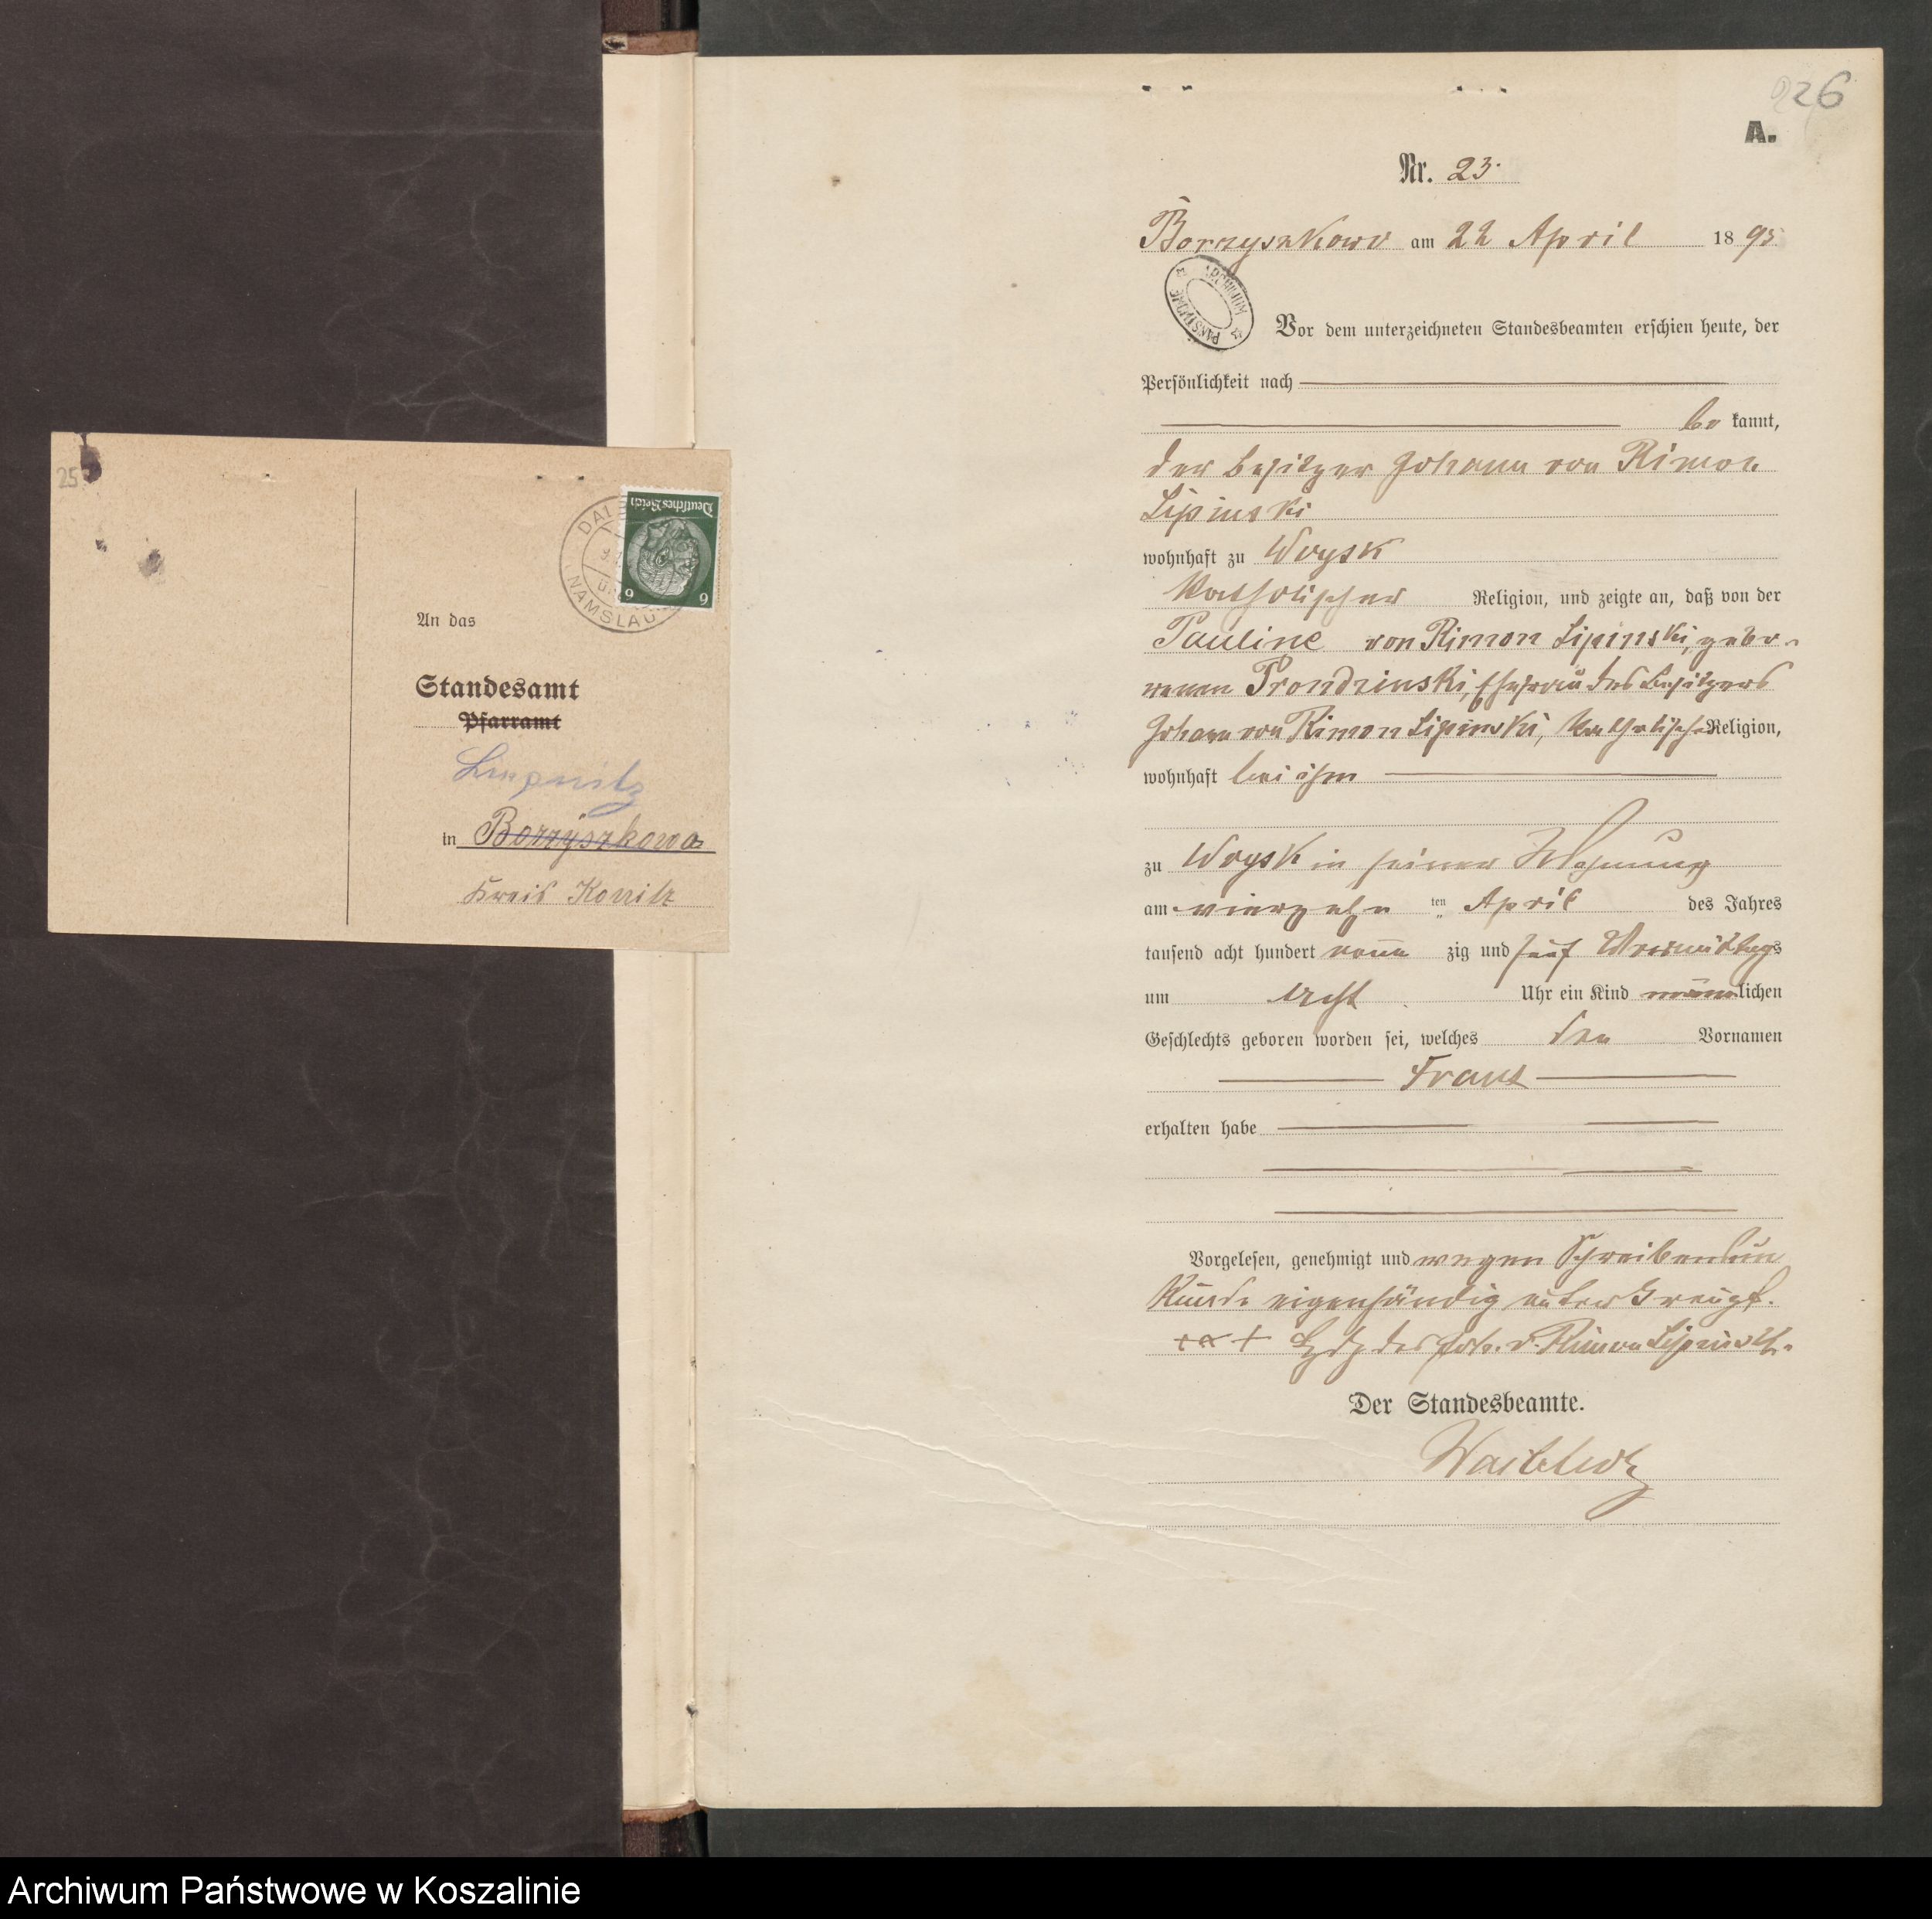 25
Deutsches Reich
6 6
NAMSLAU
An das
Standesamt
Pfarramt
in Borzyszkowo
Kreis Konitz
226
A.
Nr. 23.
Borzyszkowo am 22 April 1895
ARCHIWUM PAŃSTWOWE
Vor dem unterzeichneten Standesbeamten erschien heute, der
Persönlichkeit nach
be kannt,
der Besitzer Johann von Rimon
Lipinski
wohnhaft zu Woysk
katholischer Religion, und zeigte an, daß von der
Pauline von Rimon Lipinski, gebo-
renen Prondzinski, Ehefrau des Besitzers
Johann von Rimon Lipinski, katholischer Religion,
wohnhaft bei ihm
zu Woysk in seiner Wohnung
am vierzehn ten April des Jahres
tausend acht hundert neun zig und fünf Vormittags
um acht Uhr ein Kind männlichen
Geschlechts geboren worden sei, welches den Vornamen
Franz
erhalten habe
Vorgelesen, genehmigt und wegen Schreibensun
kunde eigenhändig unter
+++ Hdz des Joh. v. Rimon Lipinski.
Der Standesbeamte.
Archiwum Państwowe w Koszalinie